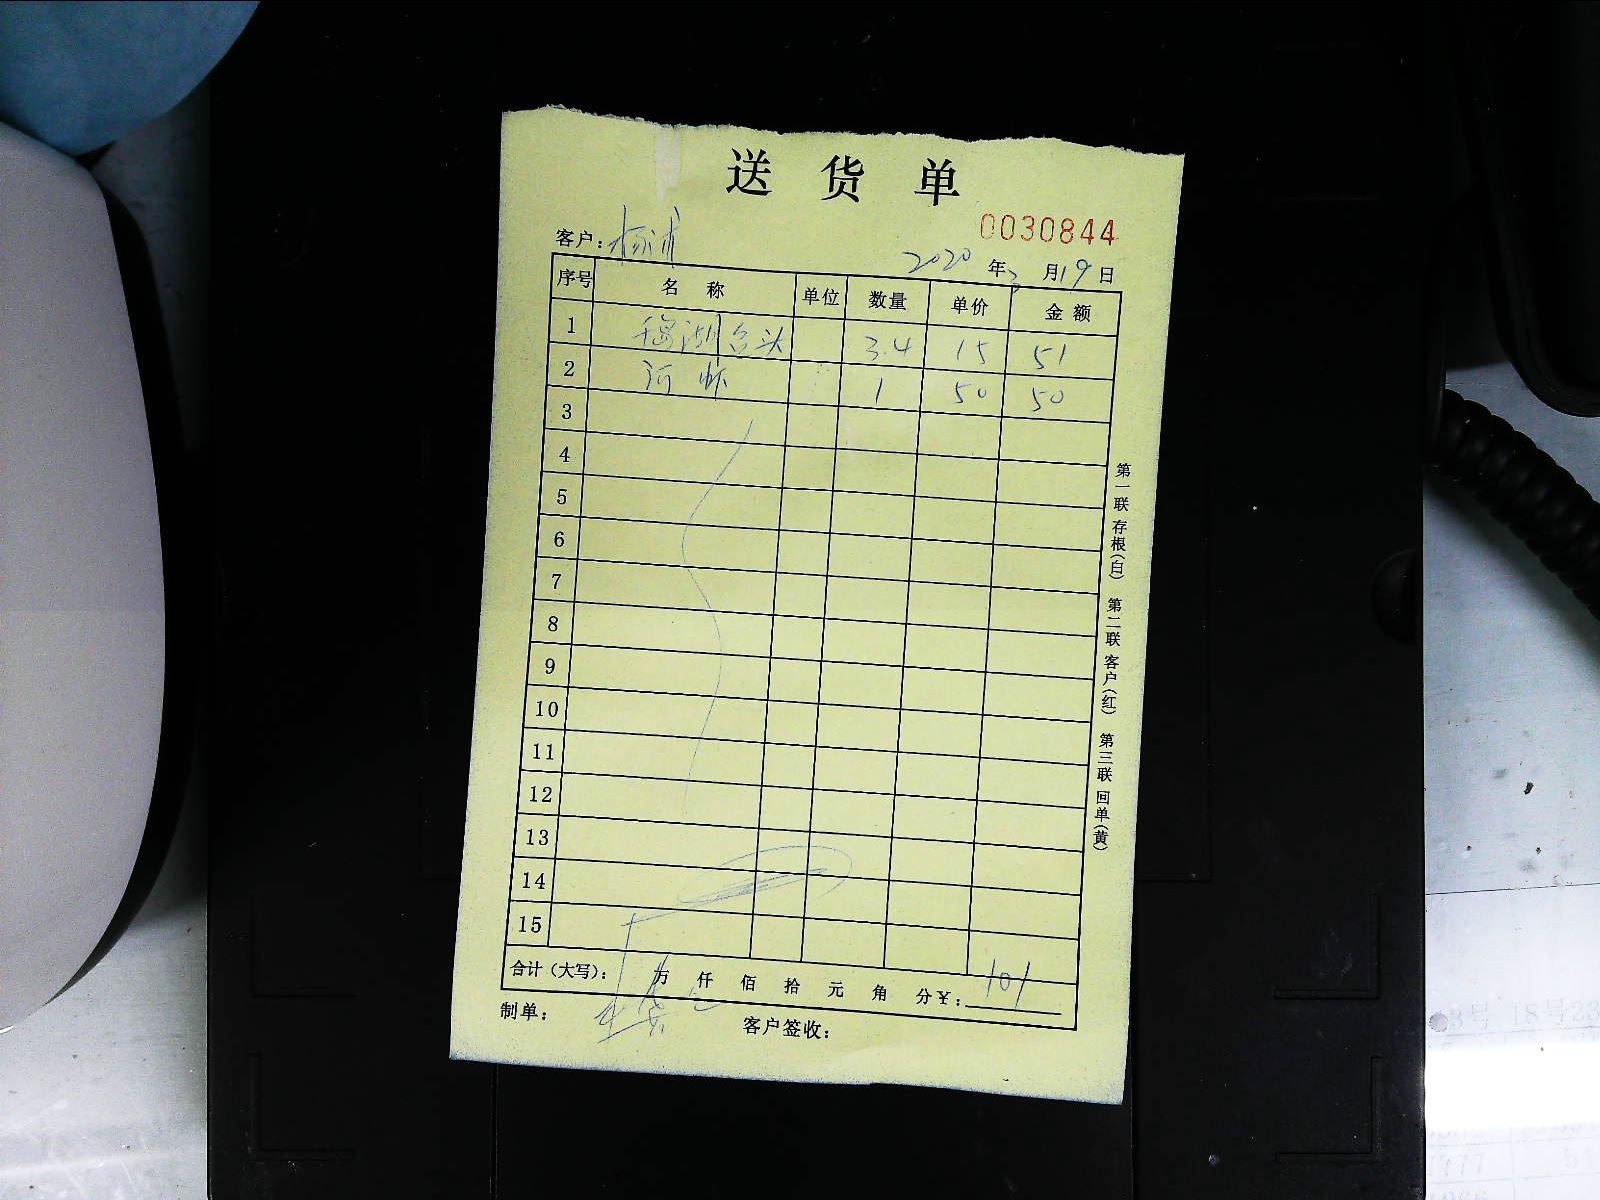 送货单
0030844
客户：杨浦
2020年3月19日
序号 名称 单位 数量 单价 金额
1 3.4 15 51
2 河虾 1 50 50
3
4
5
6
7
8
9
10
11
12
13
14
15
合计（大写）： 万 仟 佰 拾 元 角 分 ¥：101
制单： 客户签收：
第一联存根（白） 第二联客户（红） 第三联回单（黄）
8号 18号23